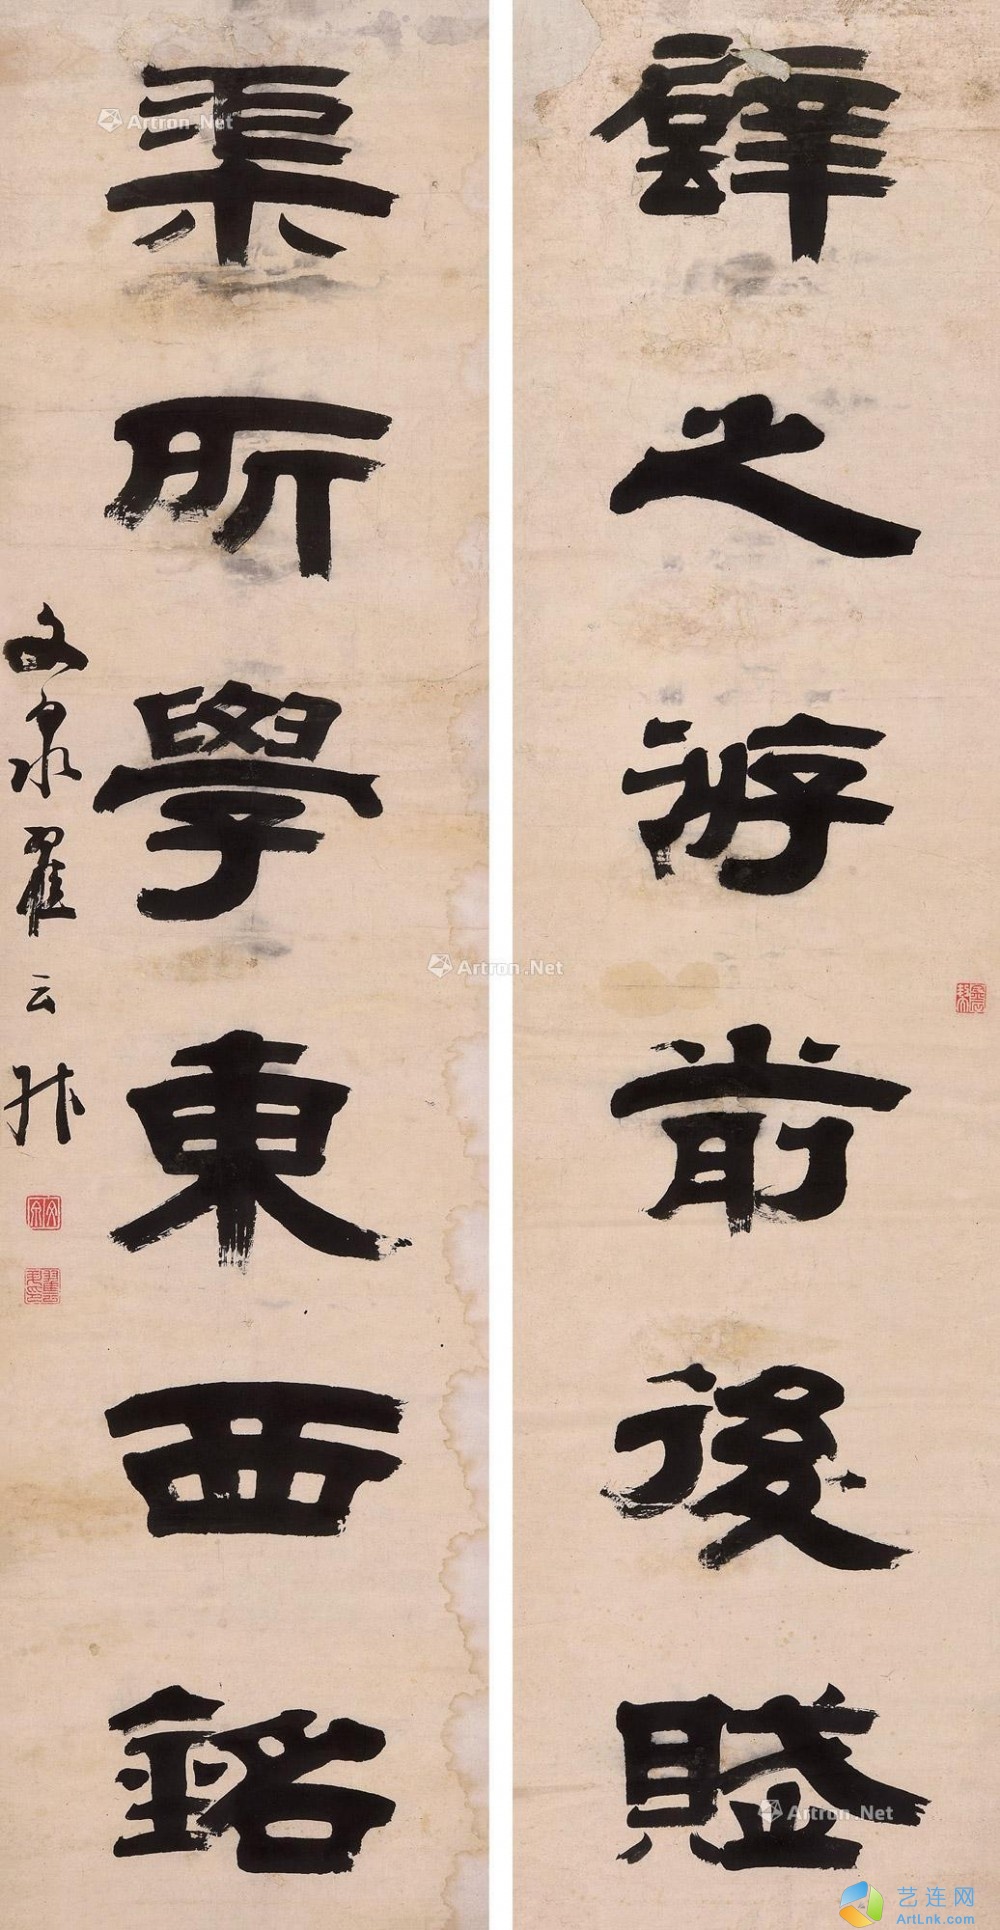 壁之游前後賦
渠所學東西銘
文泉翟云升
Artron.Net
Artron.Net
Artron.Net
艺连网
ArtLnk.com